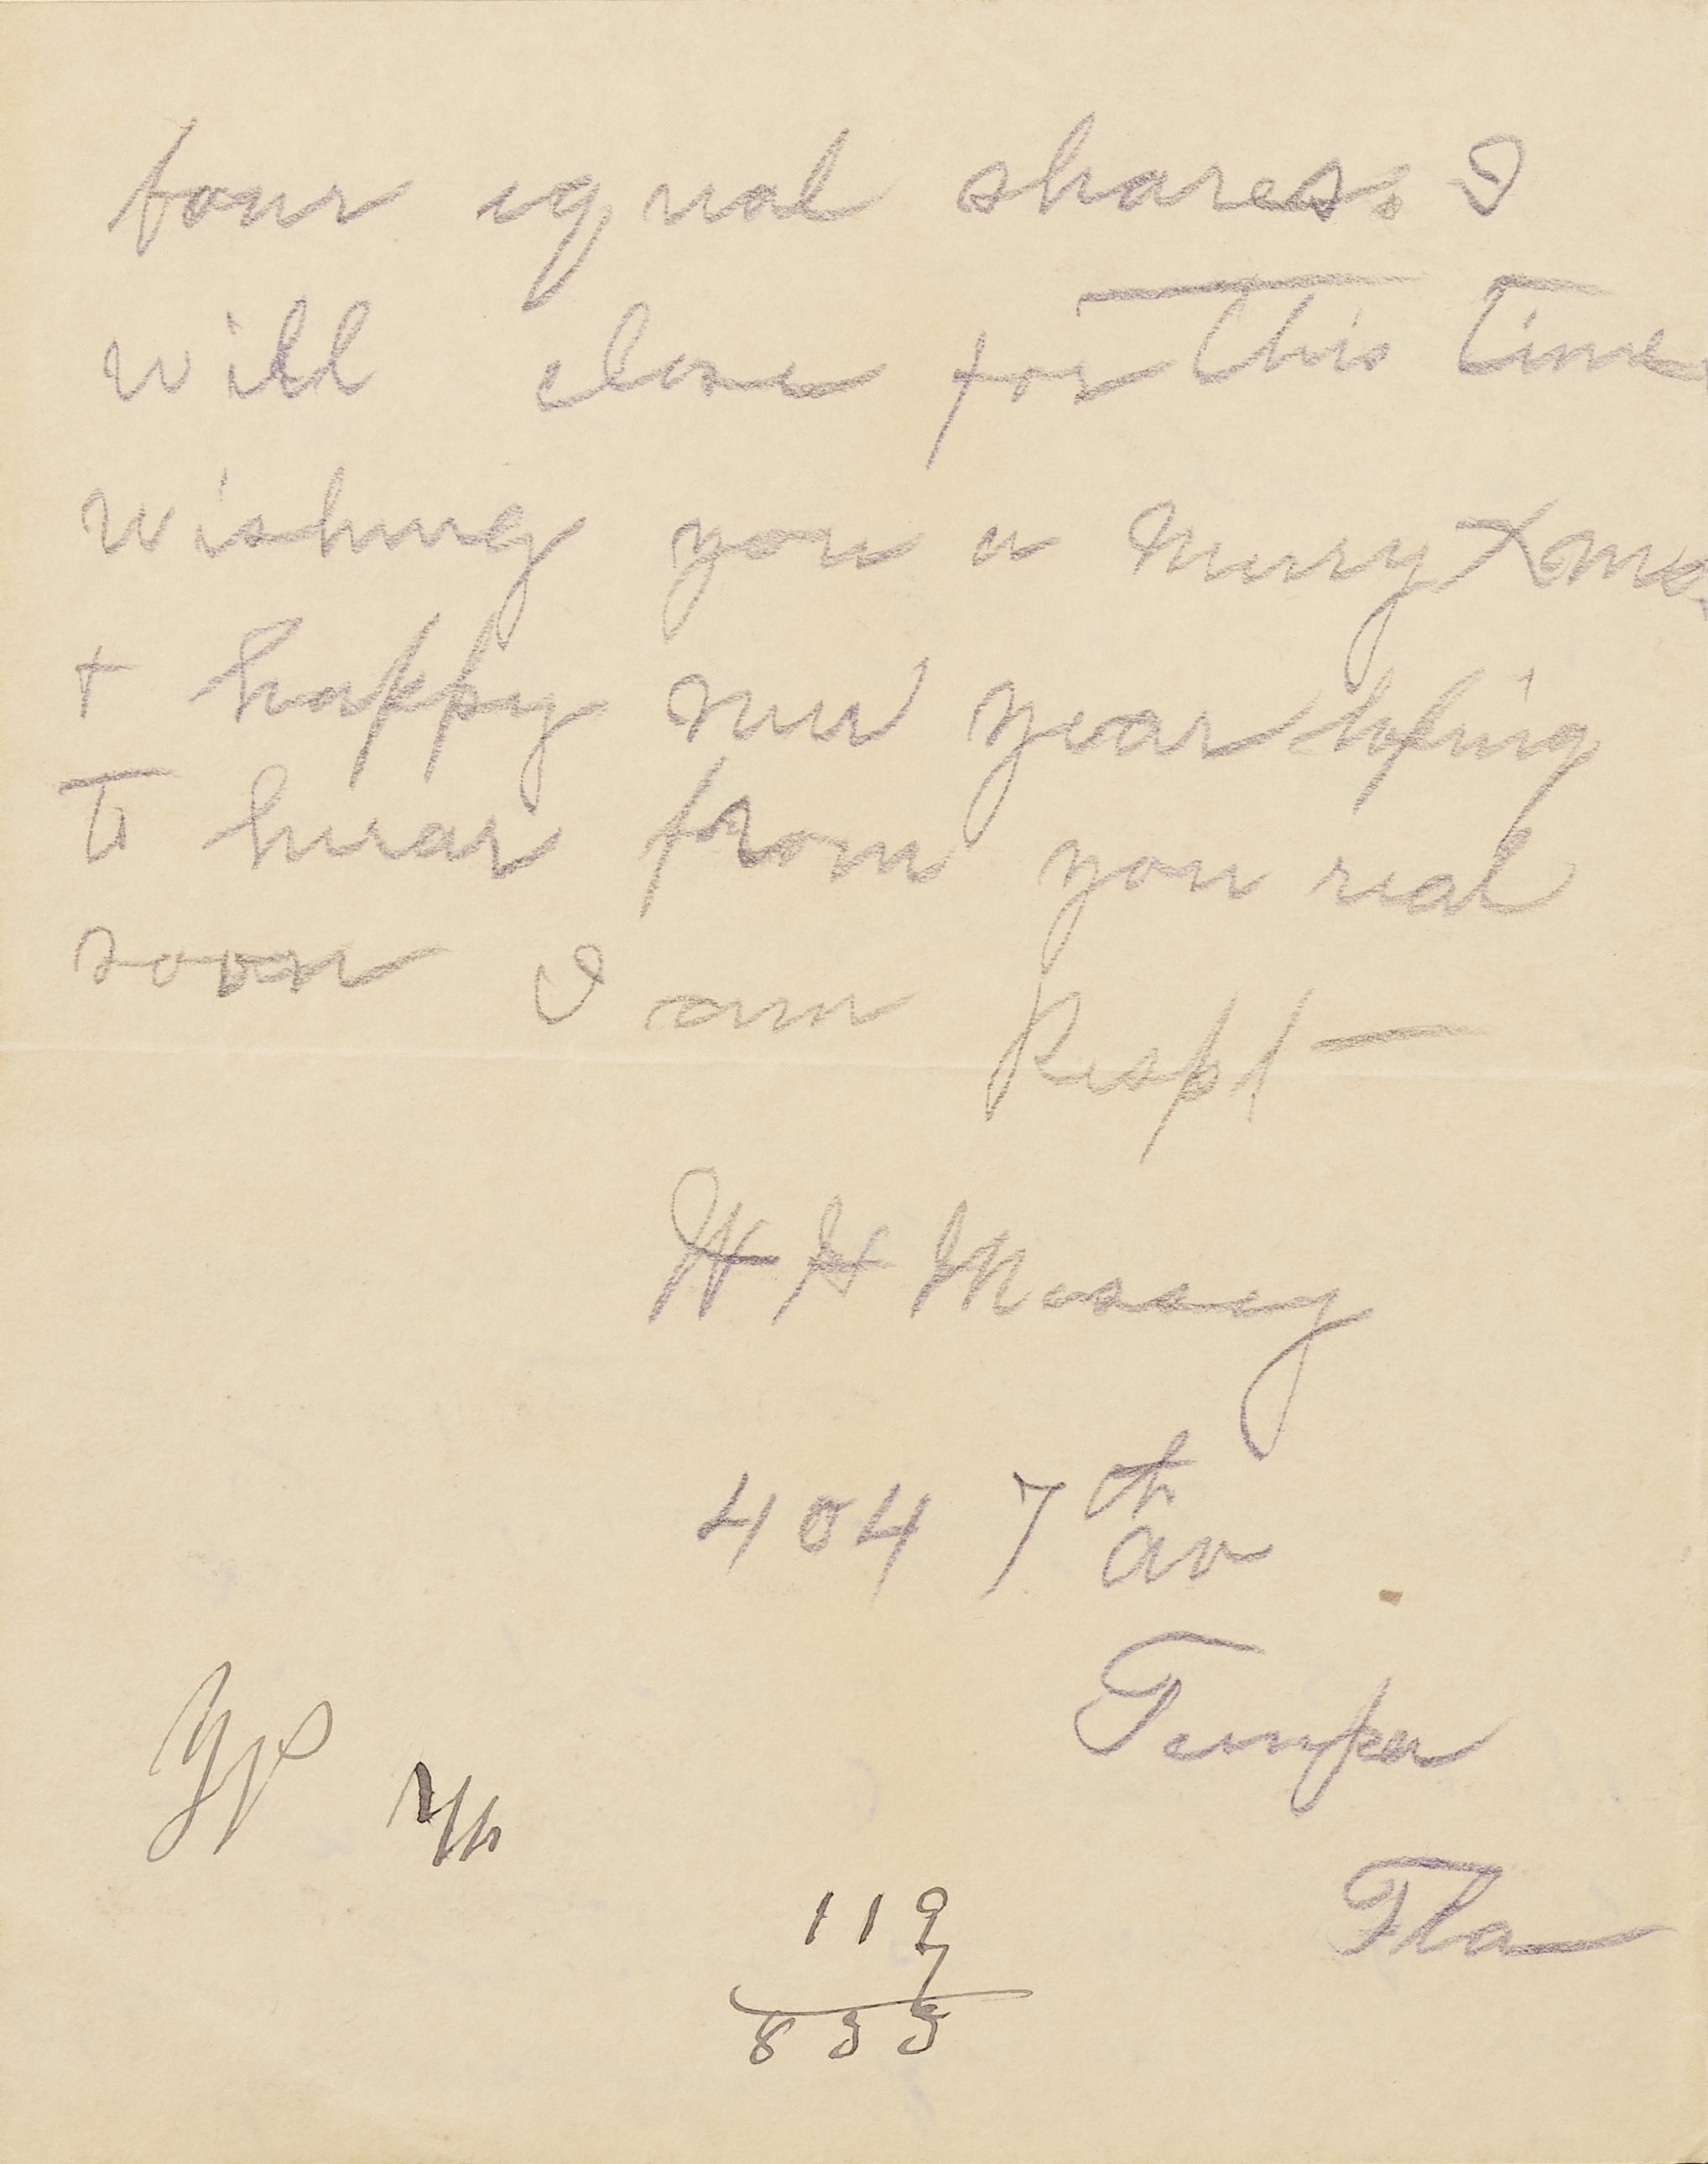 four equal shares. I
will close for This Time
wishing you a Merry Xmas
+ happy New Year hoping
To hear from you real
soon I am Respt —
W H Massey
404 7th av
Tampa
Fla
119
7
833